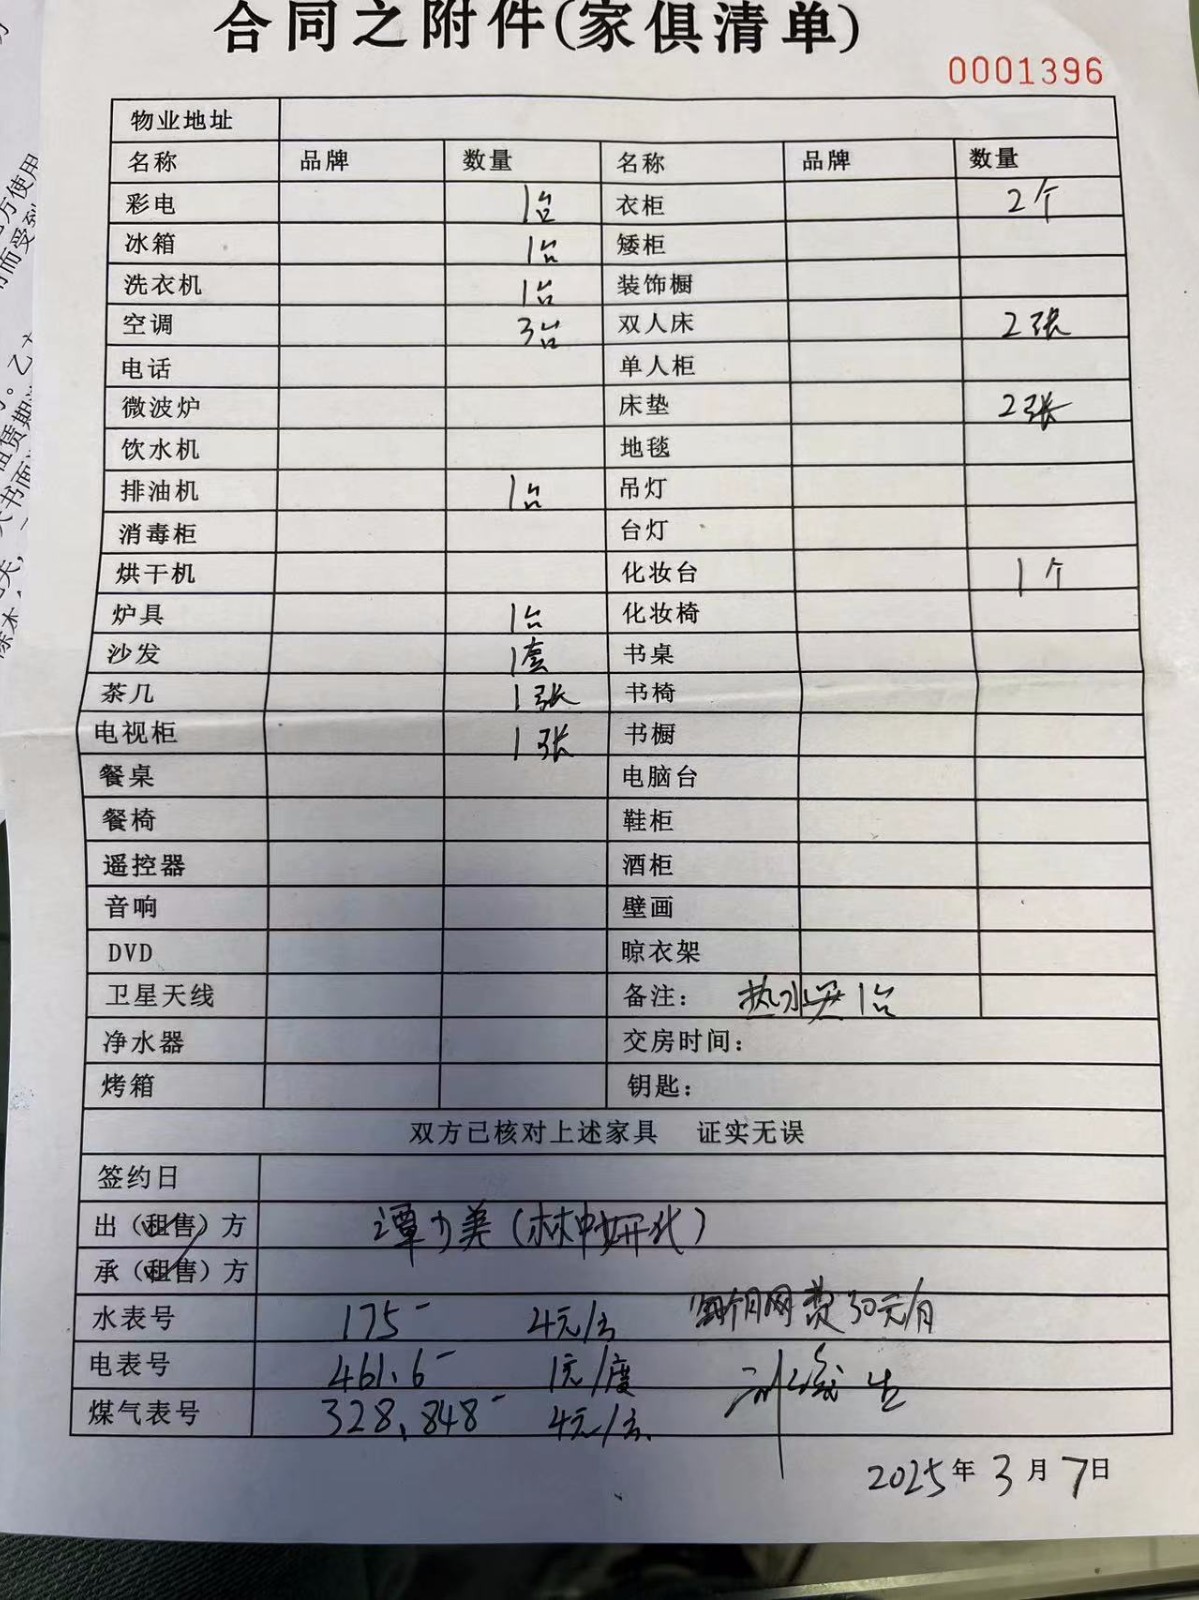 合同之附件(家俱清单)
0001396
物业地址
名称 品牌 数量 名称 品牌 数量
彩电 1台 衣柜 2个
冰箱 1台 矮柜
洗衣机 1台 装饰橱
空调 3台 双人床 2张
电话 单人柜
微波炉 床垫 2张
饮水机 地毯
排油机 1台 吊灯
消毒柜 台灯
烘干机 化妆台 1个
炉具 1台 化妆椅
沙发 1套 书桌
茶几 1张 书椅
电视柜 1张 书橱
餐桌 电脑台
餐椅 鞋柜
遥控器 酒柜
音响 壁画
DVD 晾衣架
卫星天线 备注: 热水器 1台
净水器 交房时间:
烤箱 钥匙:
双方已核对上述家具 证实无误
签约日
出(租售)方 谭少美(林中妍代)
承(租售)方
水表号 175 4元/方 每个月网费30元/月
电表号 461.6 1元/度
煤气表号 328.848 4元/方
2025年3月7日